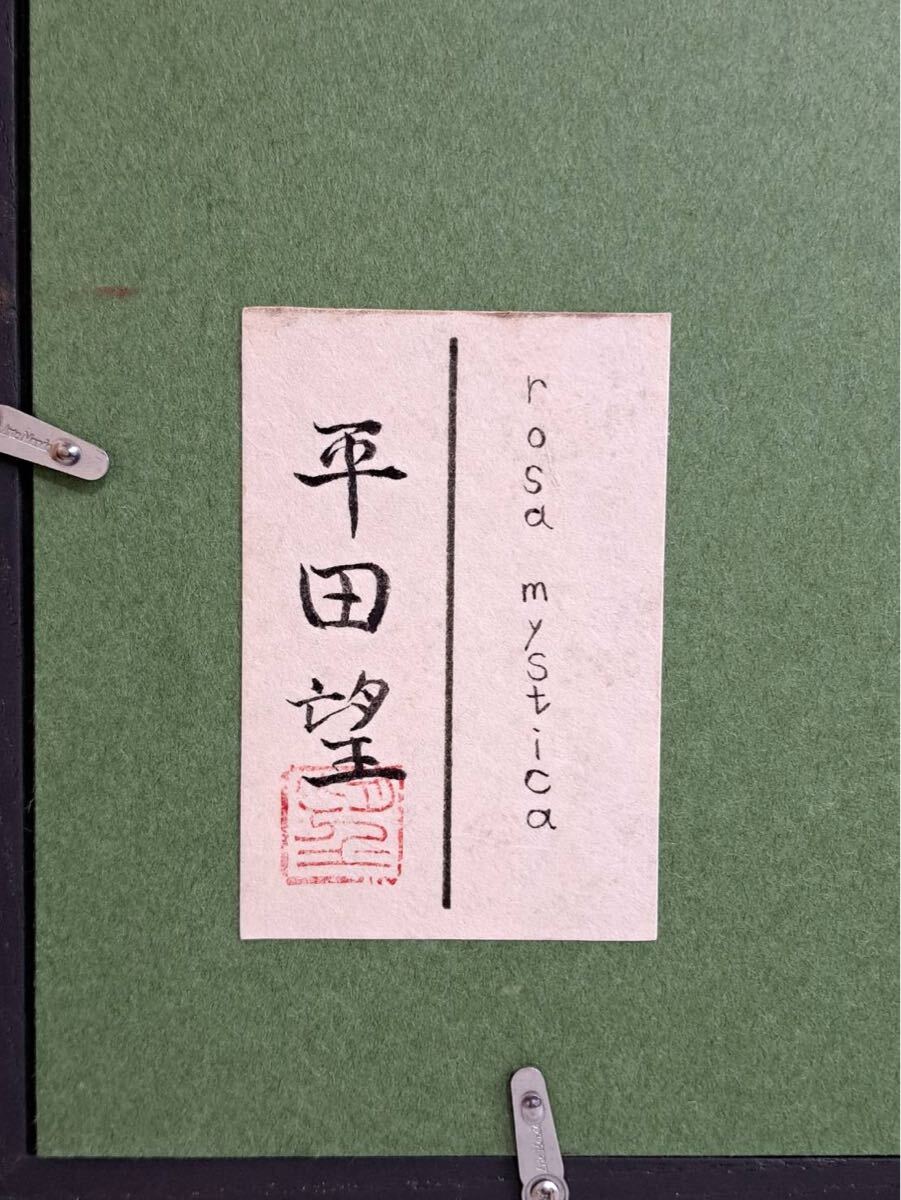 rosa mystica
平田望